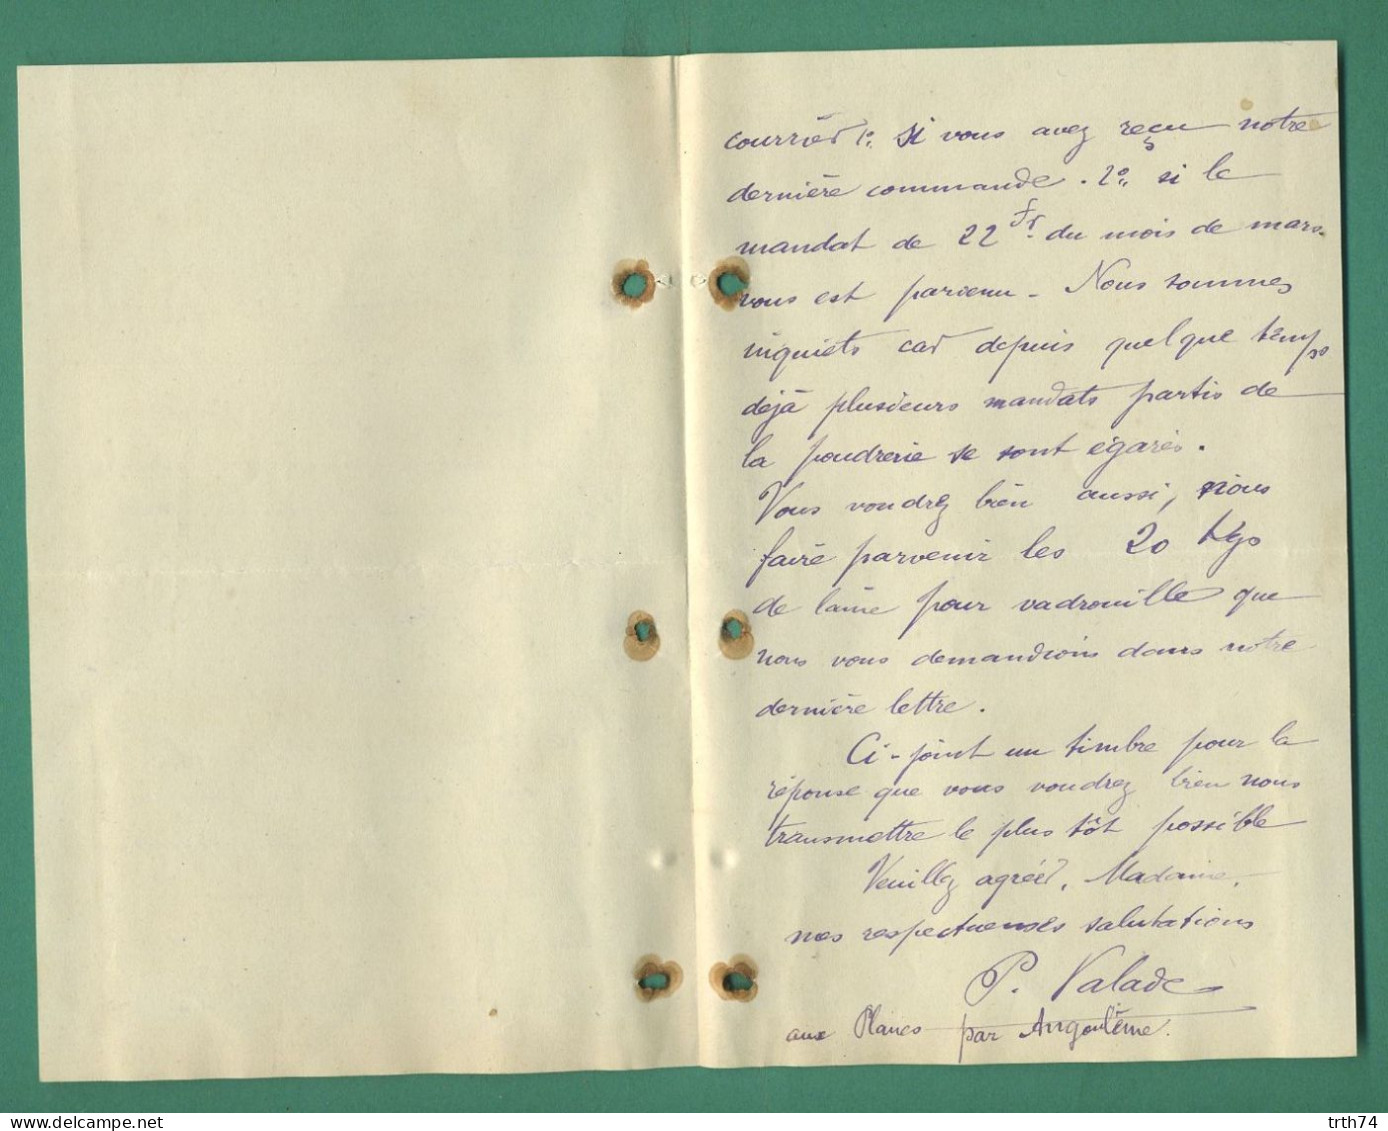 courrier 1º. si vous avez reçu notre
dernière commande. 2º. si le
mandat de 22 Fr. du mois de mars.
vous est parvenu - Nous sommes
inquiets car depuis quelque temps
déjà plusieurs mandats partis de
la poudrerie se sont égarés.
Vous voudrez bien aussi, nous
faire parvenir les 20 Kgs
de laine pour vadrouille que
nous vous demandions dans notre
dernière lettre.
Ci-joint un timbre pour la
réponse que vous voudrez bien nous
transmettre le plus tôt possible
Veuillez agréer, Madame,
nos respectueuses salutations
P. Valade
aux Planes par Angoulême.
delcampe.net
trth74